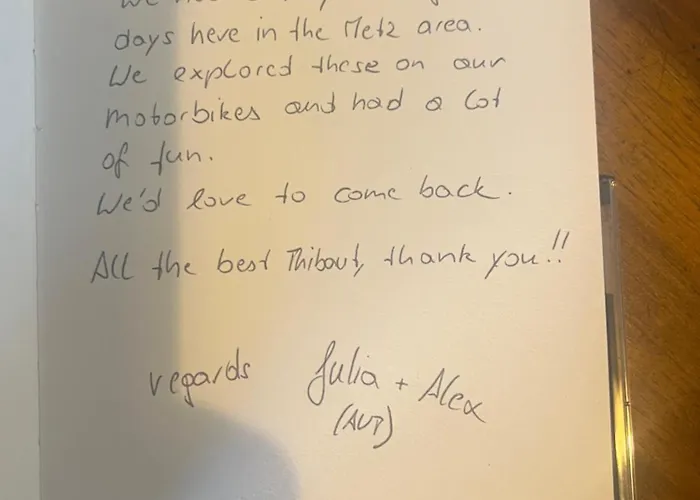 days here in the Metz area.
We explored these on our
motorbikes and had a lot
of fun.
We'd love to come back.
All the best Thibout, thank you!!
regards Julia + Alex
(AUT)